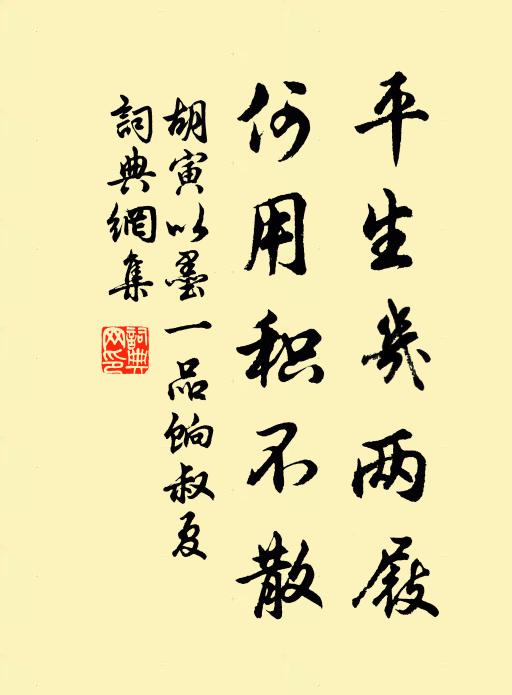 平生几两屐
何用积不散
胡寅以墨一品饷叔夏
詞典網集
詞典网印